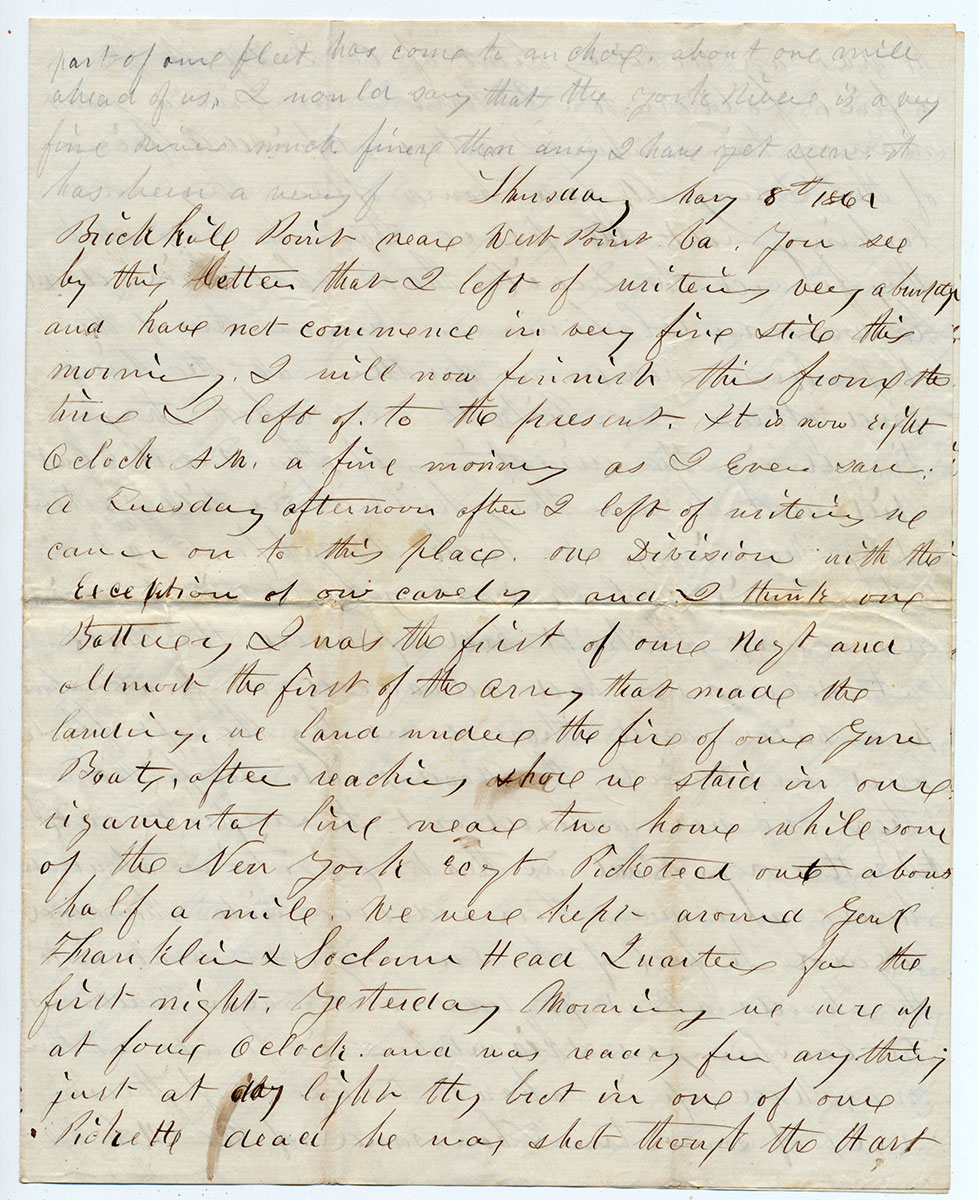 part of oure fleet has come to anchor. about one mill
ahead of us. I would say that the York River is a very
fine river much finer then any I have yet seen. it
has been a very f
Thursday May 8th 1862
Brick Kill Point neare West Point Va. You see
by this letter that I left of writeing very abuptly
and have not commence in very fine stile this
morning. I will now finnish this frome the
time I left of. to the present. It is now eight
Oclock AM. a fine morning as I Ever saw.
A Tuesday afternoon after I left of writeing we
came on to this place. oure Division with the
Exception of our cavelry and I think one
Battery I was the first of oure Regt and
allmost the first of the army that made the
landing. we land undere the fire of oure Gun
Boats, after reaching shore we staid in oure
rigamental line neare two houre while some
of the New York Regt Picketed out about
half a mile. We were kept around Genl
Franklin & Slocum Head Quarters for the
first night. Yesterday Morning we were up
at foure Oclock. and was ready for anything
just at day light they brot in one of oure
Picketts dead he was shot though the Hart